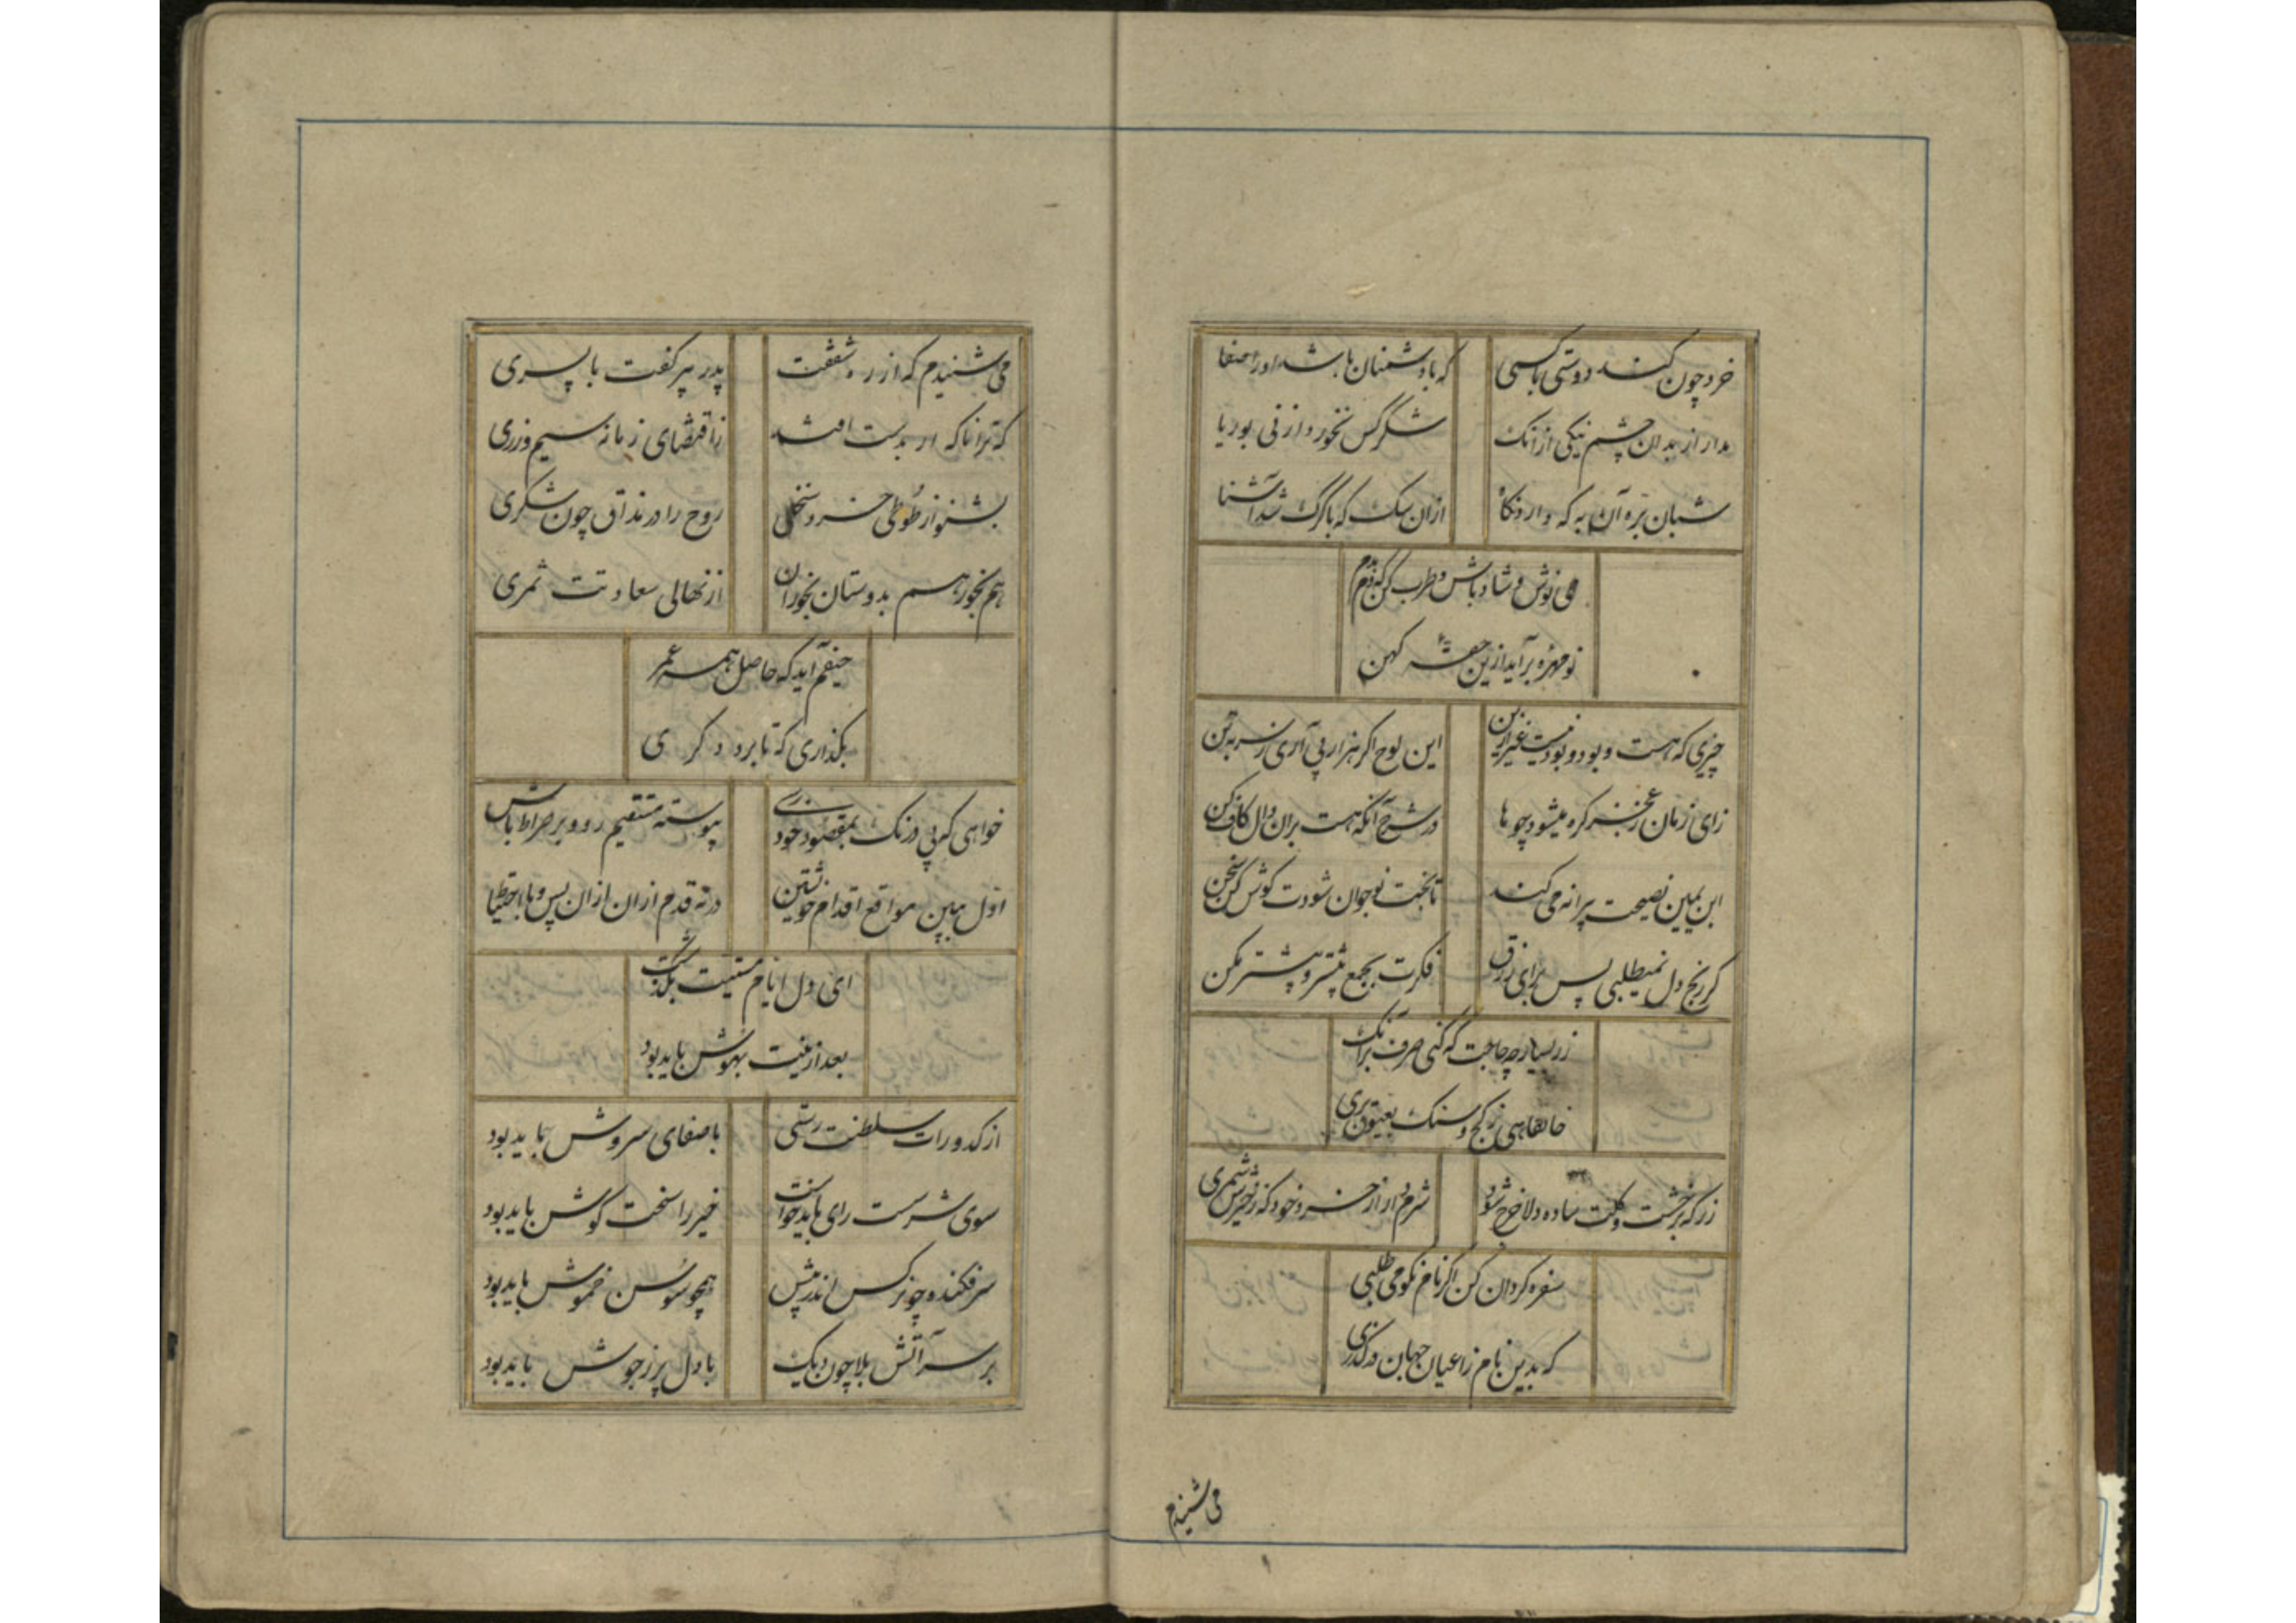 خرد چون کند دوستی با کسی
که با دشمنان باشد او را صفا
مدار از بدان چشم نیکی ازانک
شکر کس نخورد از نی بوریا
شبان بره آن به که دارد نکاه
ازان سک که با کرک شد آشنا
می نوش و شاد باش و طرب کن که دم بدم
نو مهره برآید ازین حقهٔ کهن
چیزی که هست و بود و بود نیست غیر ازین
این لوح اکر هزار پی آری ز سر به بن
زای زمان ز عجز کره میشود چو ها
در شرح آنکه هست بران دال کاف کن
ابن یمین نصیحت پیرانه می کند
تا بخت نوجوان شودت کوش کن سخن
کر رنج دل نمیطلبی پس برای رزق
فکرت بجمع بیشتر و پیشتر مکن
زر بسیار چه حاجت که کنی صرف برانک
خانقاهی ز کچ و سنک بعیوق بری
زر که بر خشت و کلت ساده دلا خرج شود
شرم دار از خرد خود که ز خیرش شمری
سفره کردان کن اکر نام نکو می طلبی
که بدین نام ز اعیان جهان در کذری
می شنیدم
می شنیدم که از ره شفقت
پدر پیر کفت با پسری
که ترا ناکه ار بدست افتد
ز اقتضای زمانه سیم و زری
بشنو از طوطی خرد سخنی
روح را در مذاق چون شکری
هم بخور هم بدوستان بخوران
از نهالی سعادتت ثمری
حیفم آید که حاصل همه عمر
بکذاری که تا برد دکری
خواهی که بی درنک بمقصود خود رسی
پیوسته مستقیم رو و بر صراط باش
اول ببین مواقع اقدام خویشتن
در نه قدم ازان ازان پس و با احتیاط
ای دل ایام مستیت بکذشت
بعد ازینت بهوش باید بود
از کدورات سلطنت رستی
با صفای سروش باید بود
سوی شرست رای باید خواست
خیر را سخت کوش باید بود
سر فکنده چو نرکس اندر پیش
همچو سوسن خموش باید بود
بر سر آتش بلا چون دیک
با دل پر ز جوش باید بود